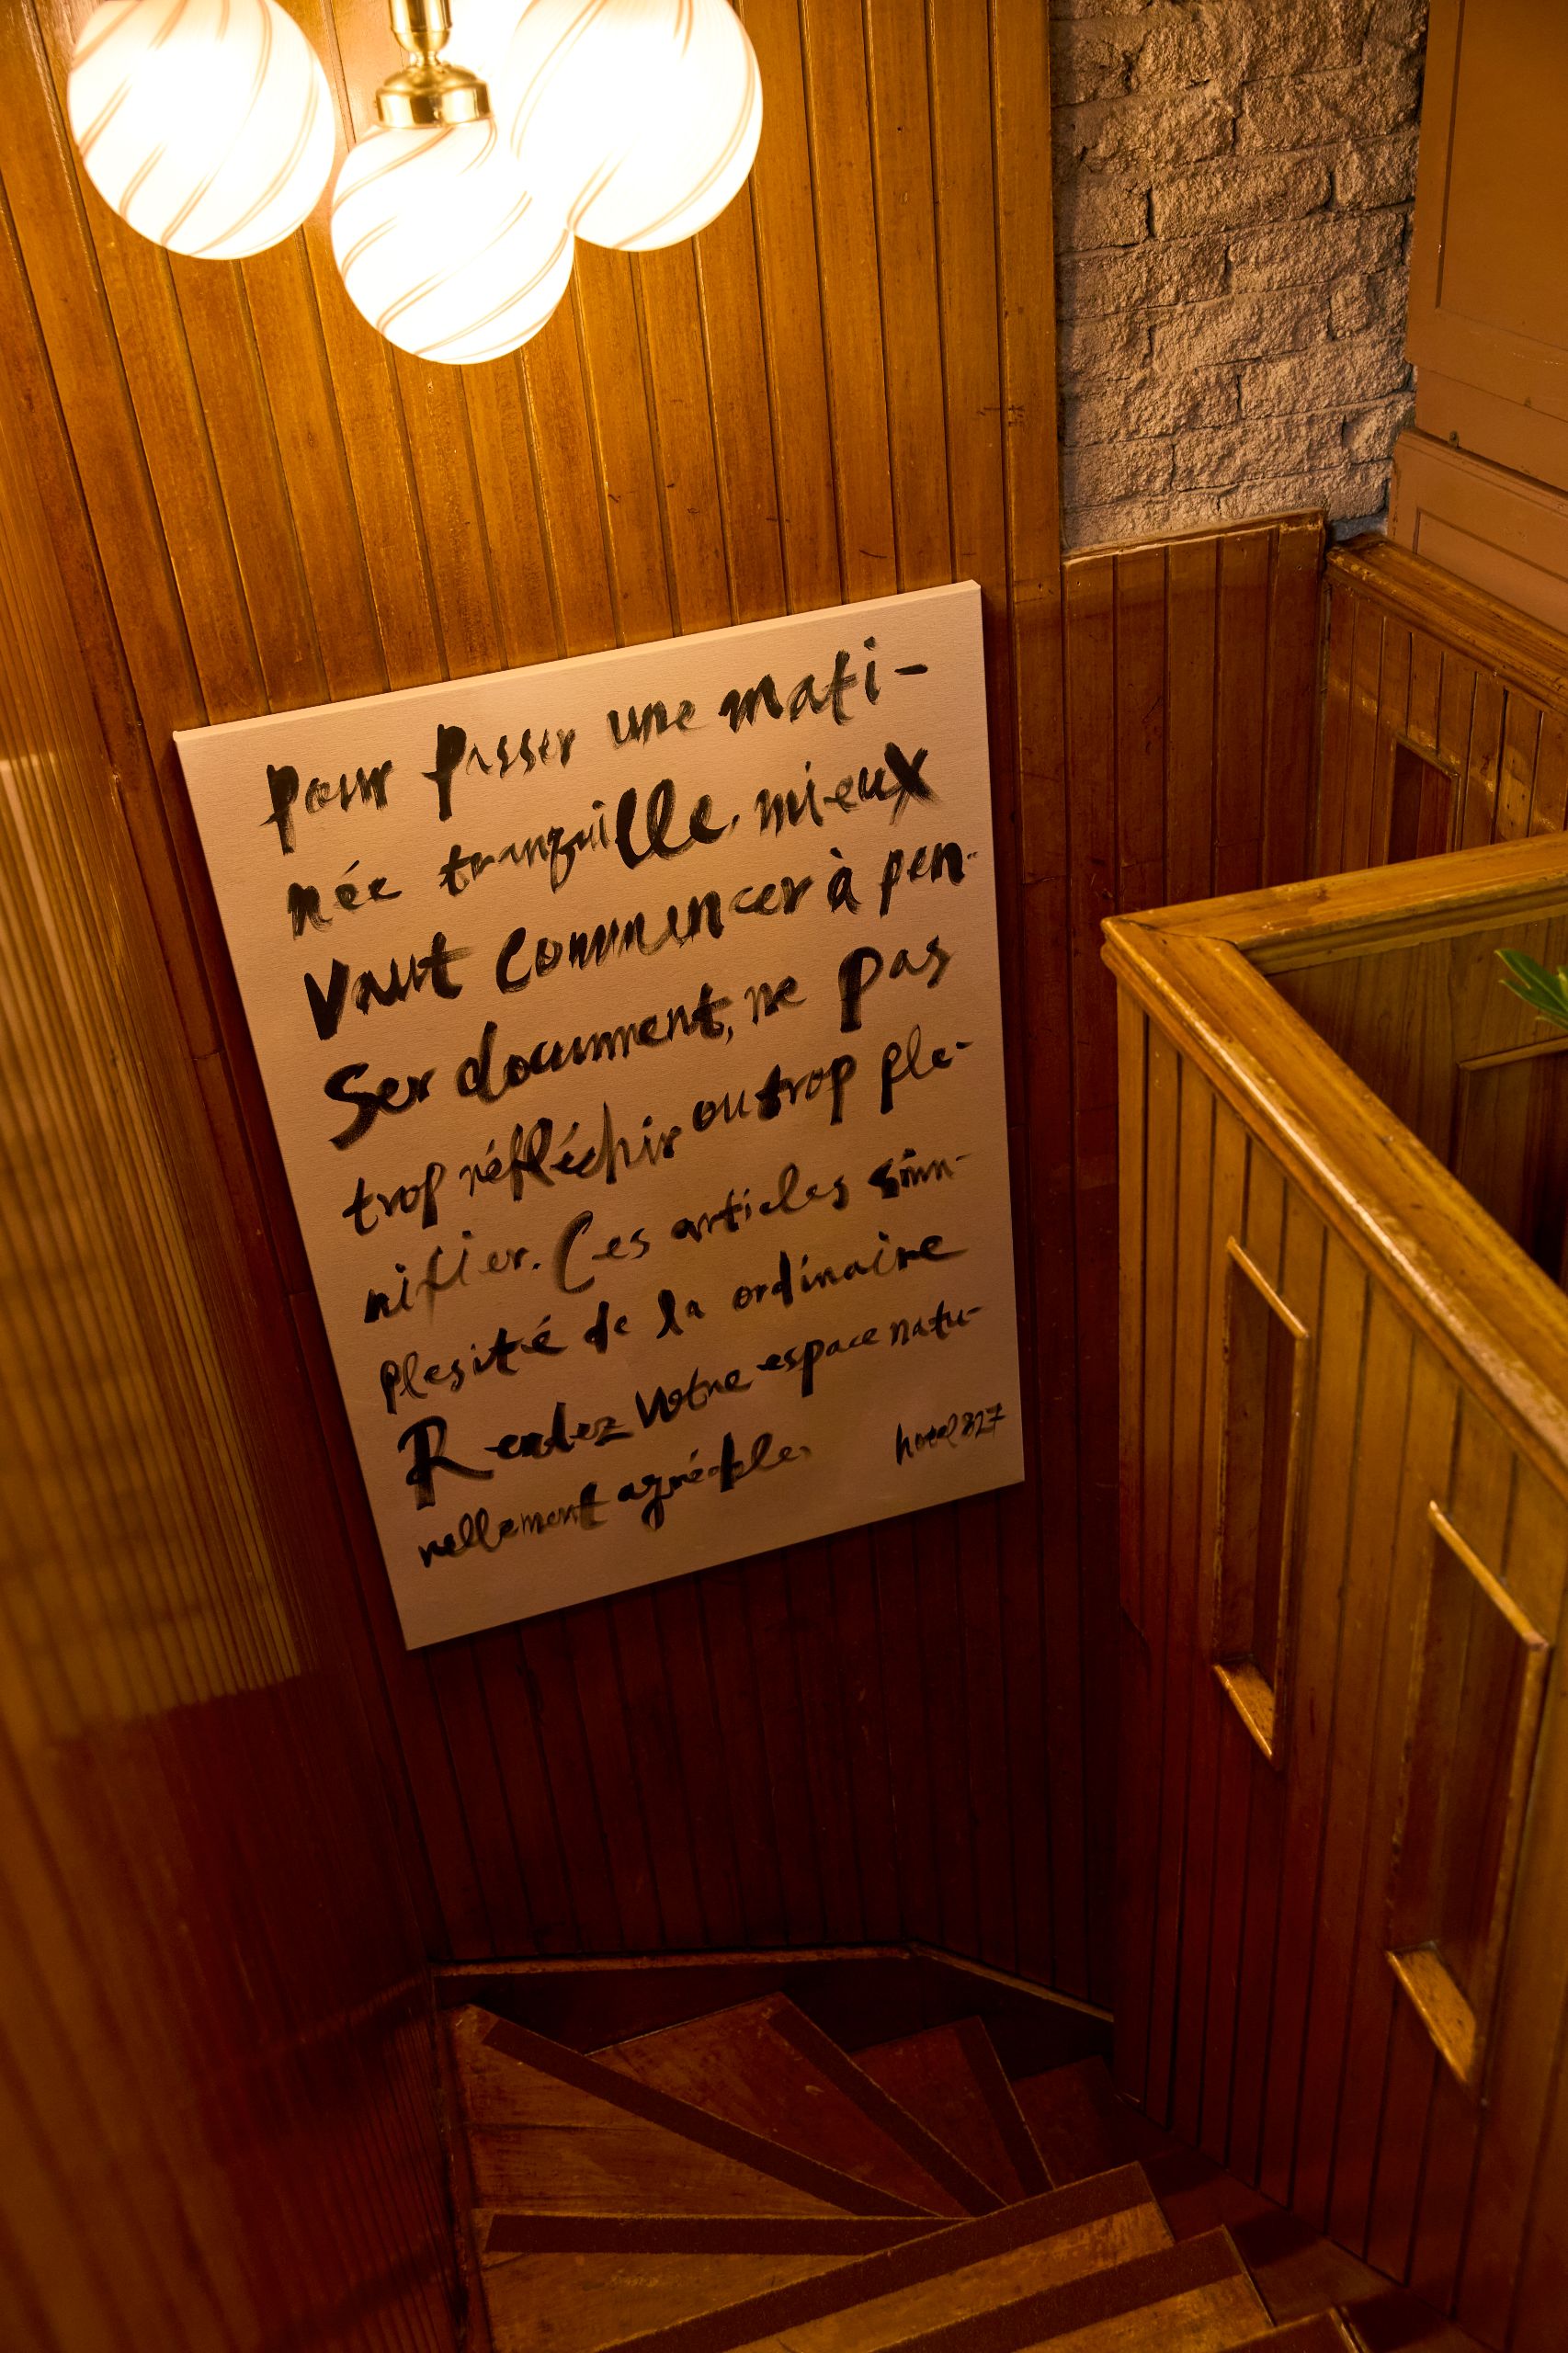 pour passer une mati-
née tranquille, mieux
vaut commencer à pen-
ser document, ne pas
trop réfléchir ou trop ple-
nifier. Ces articles sim-
plesité de la ordinaire
Rendez votre espace natu-
rellement agréable.
hotel 827